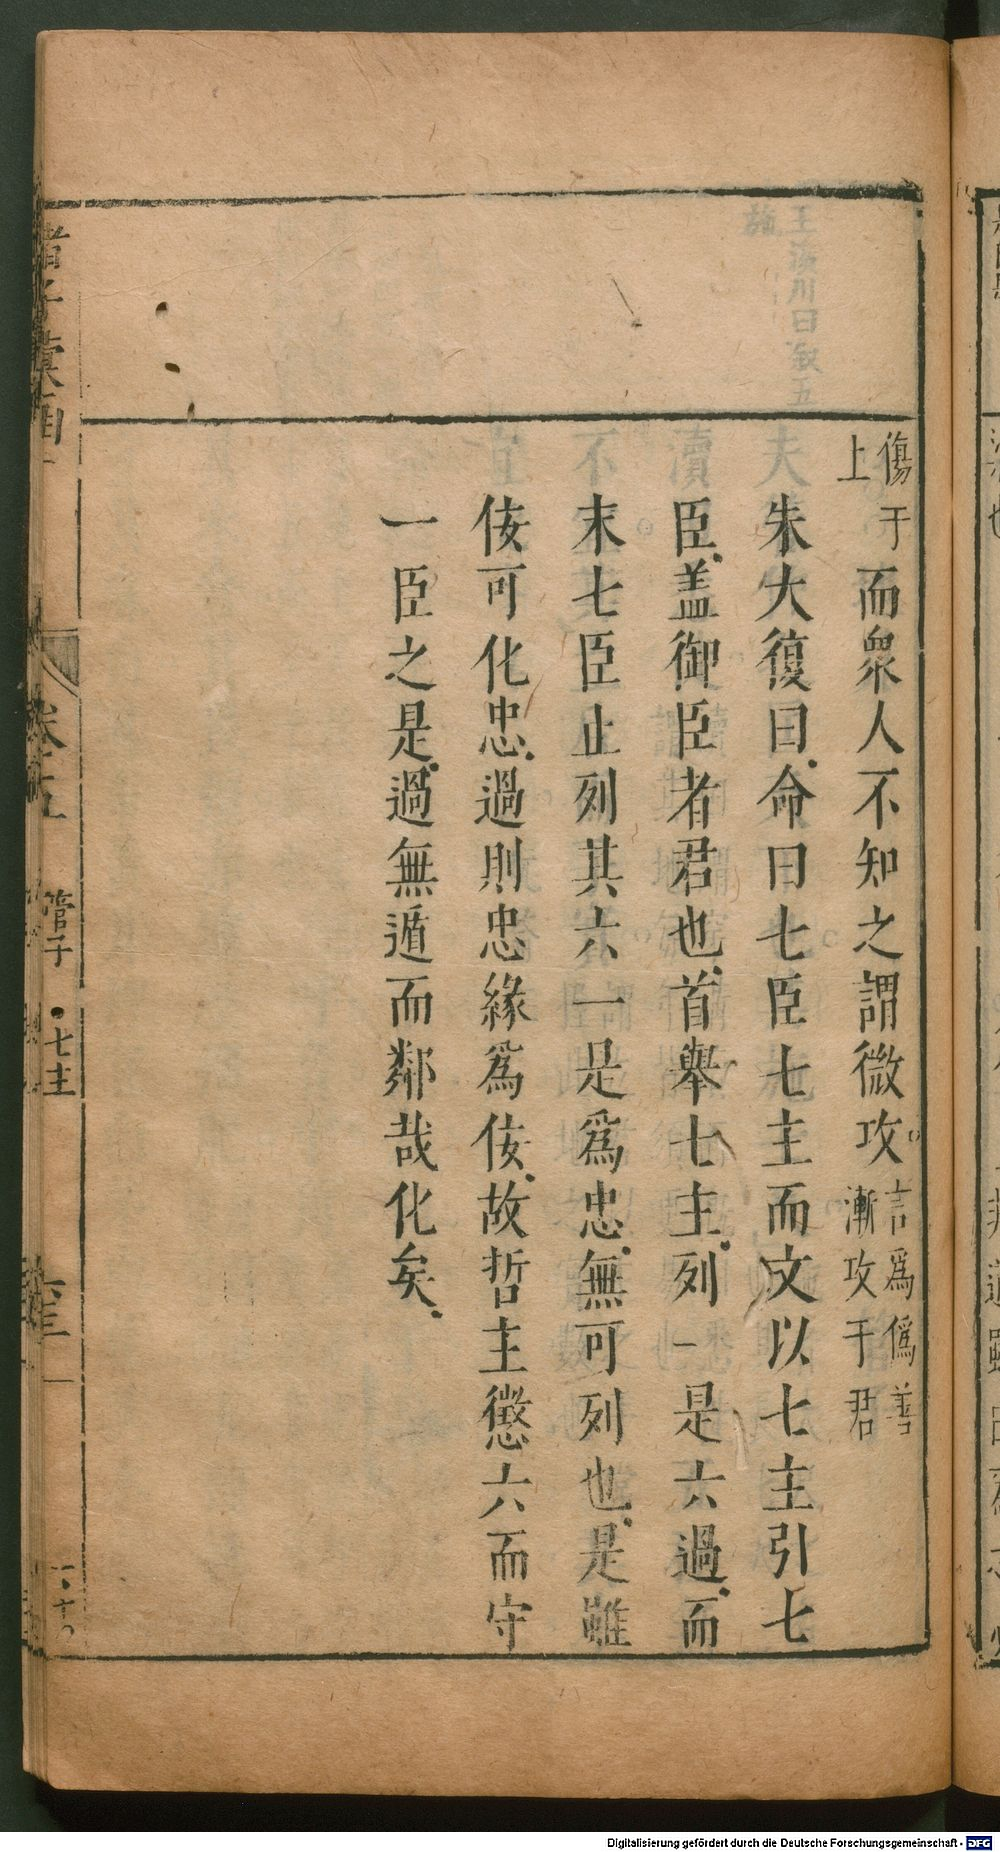 傷于上而衆人不知之謂微攻言爲僞善漸攻于君
朱大復曰命曰七臣七主而文以七主引七
臣盖御臣者君也首舉七主列一是六過而
末七臣止列其六一是爲忠無可列也是雖
侫可化忠過則忠緣爲侫故哲主懲六而守
一臣之是過無遁而鄰哉化矣
諸子彙函
卷五
管子
七主
Digitalisierung gefördert durch die Deutsche Forschungsgemeinschaft - DFG